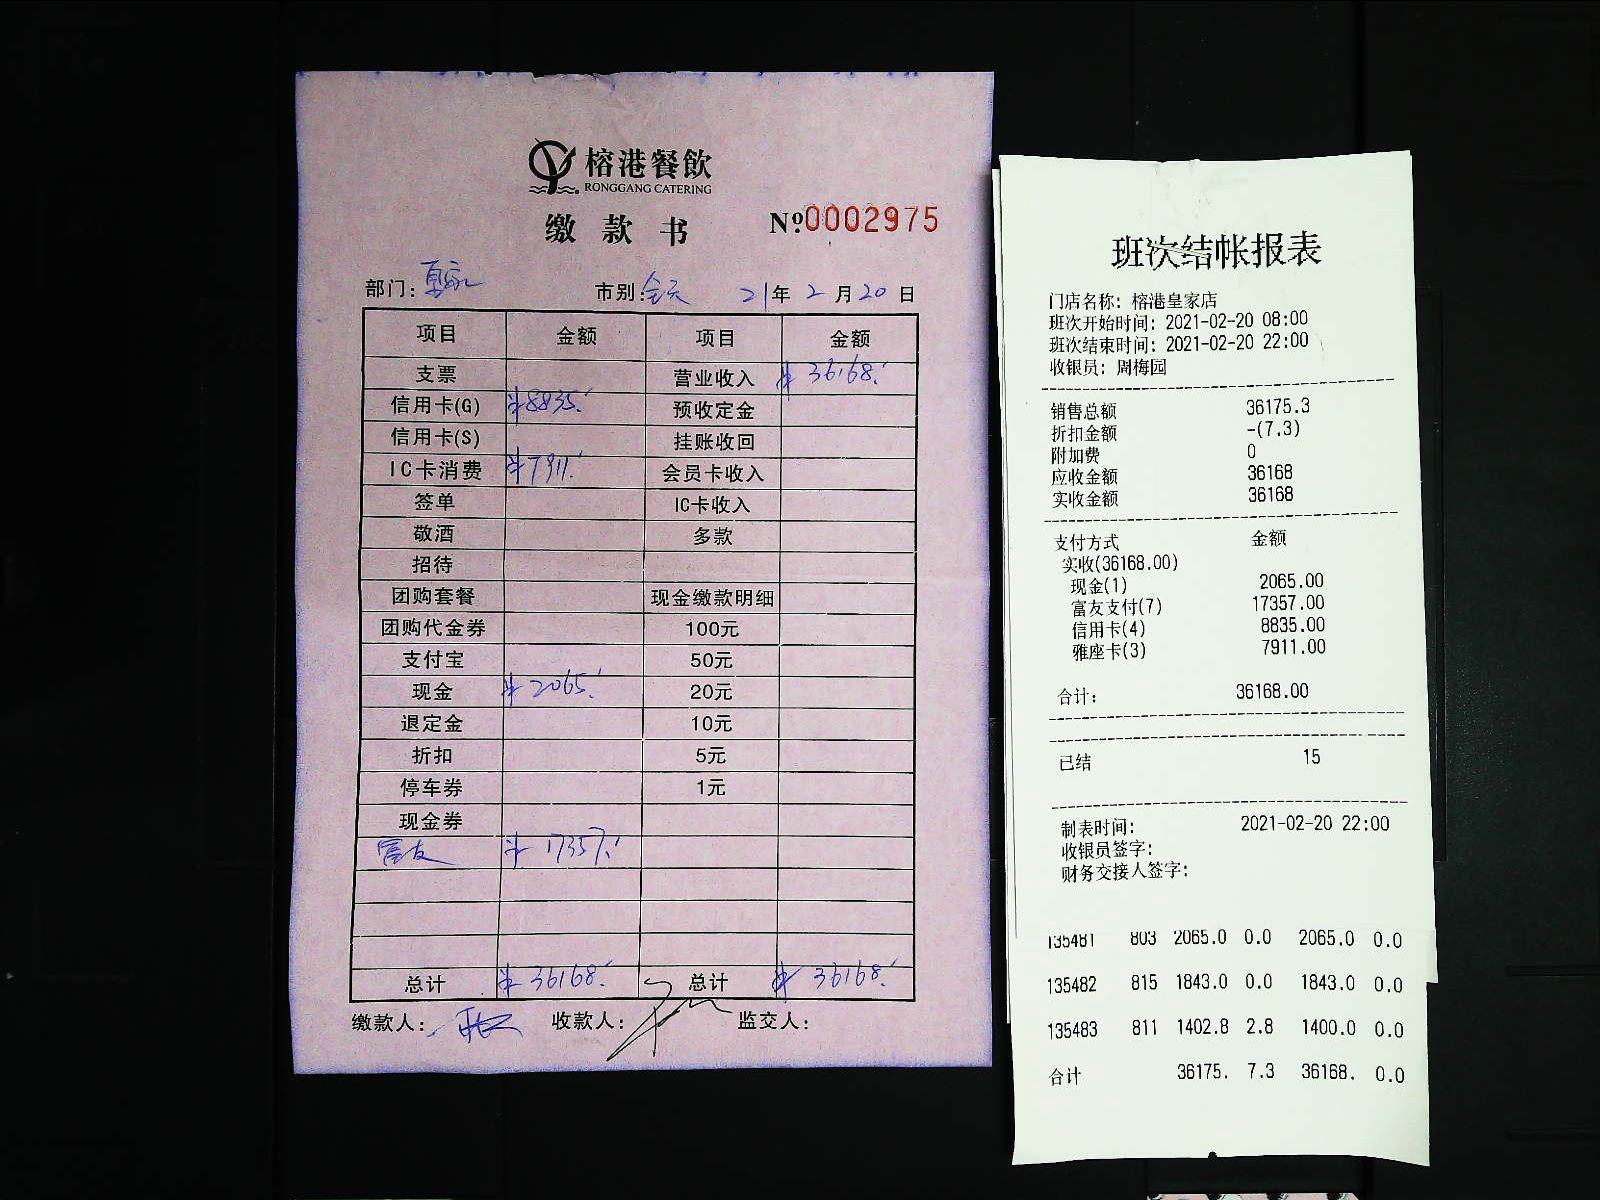 榕港餐飲
RONGGANG CATERING
缴款书 №0002975
部门: 皇家 市别: 全天 21年2月20日
项目 金额 项目 金额
支票 营业收入 ¥36168.
信用卡(G) ¥8835. 预收定金
信用卡(S) 挂账收回
IC卡消费 ¥7911. 会员卡收入
签单 IC卡收入
敬酒 多款
招待
团购套餐 现金缴款明细
团购代金券 100元
支付宝 50元
现金 ¥2065. 20元
退定金 10元
折扣 5元
停车券 1元
现金券
富友 ¥17357.
总计 ¥36168. 总计 ¥36168.
缴款人: 收款人: 监交人:
班次结帐报表
门店名称: 榕港皇家店
班次开始时间: 2021-02-20 08:00
班次结束时间: 2021-02-20 22:00
收银员: 周梅园
销售总额 36175.3
折扣金额 -(7.3)
附加费 0
应收金额 36168
实收金额 36168
支付方式 金额
实收(36168.00)
现金(1) 2065.00
富友支付(7) 17357.00
信用卡(4) 8835.00
雅座卡(3) 7911.00
合计: 36168.00
已结 15
制表时间: 2021-02-20 22:00
收银员签字:
财务交接人签字:
135481 803 2065.0 0.0 2065.0 0.0
135482 815 1843.0 0.0 1843.0 0.0
135483 811 1402.8 2.8 1400.0 0.0
合计 36175. 7.3 36168. 0.0